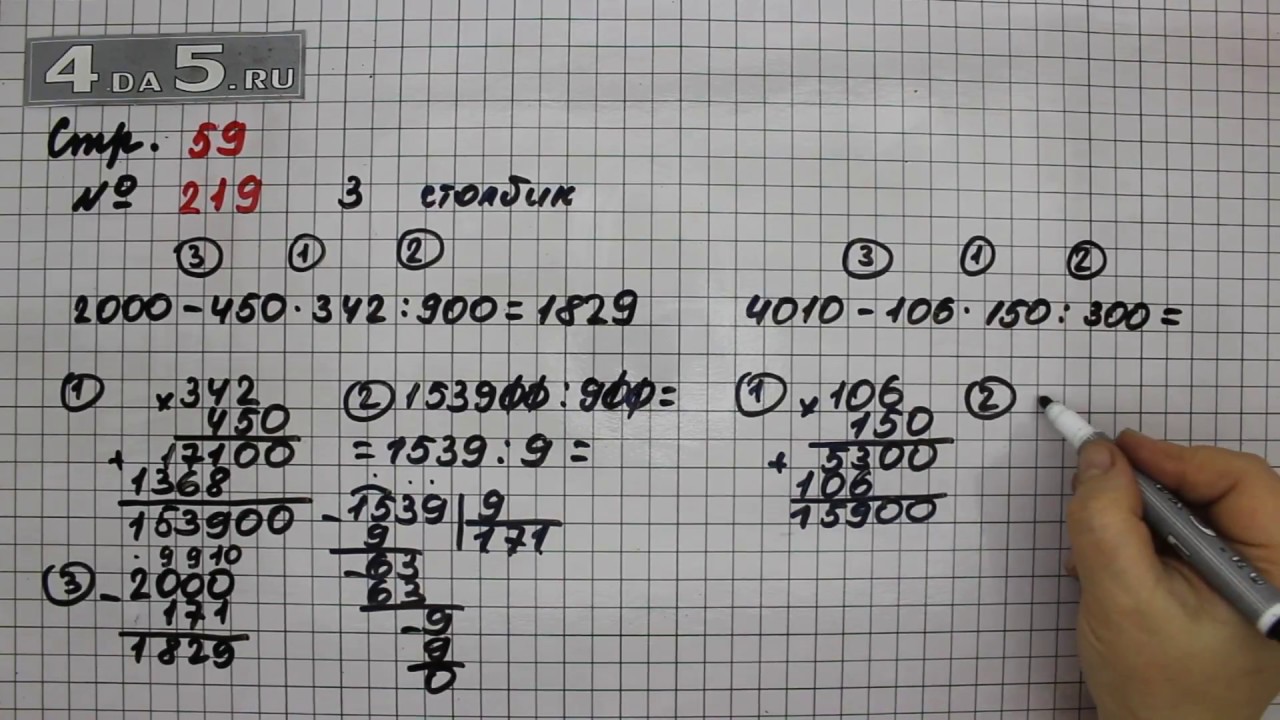 4 DA 5.RU
Стр. 59
№ 219 3 столбик
③ ① ②
2000 - 450 · 342 : 900 = 1829
① × 342
450
+ 17100
1368
153900
② 153900 : 900 =
= 1539 : 9 =
- 1539 | 9
9 171
- 63
63
- 9
9
0
. 9 9 10
③ - 2000
171
1829
③ ① ②
4010 - 106 · 150 : 300 =
① × 106
150
+ 5300
106
15900
②